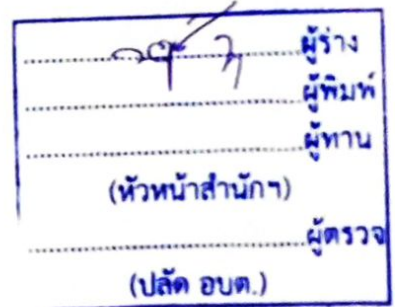 ผู้ร่าง
ผู้พิมพ์
ผู้ทาน
(หัวหน้าสำนักฯ)
ผู้ตรวจ
(ปลัด อบต.)